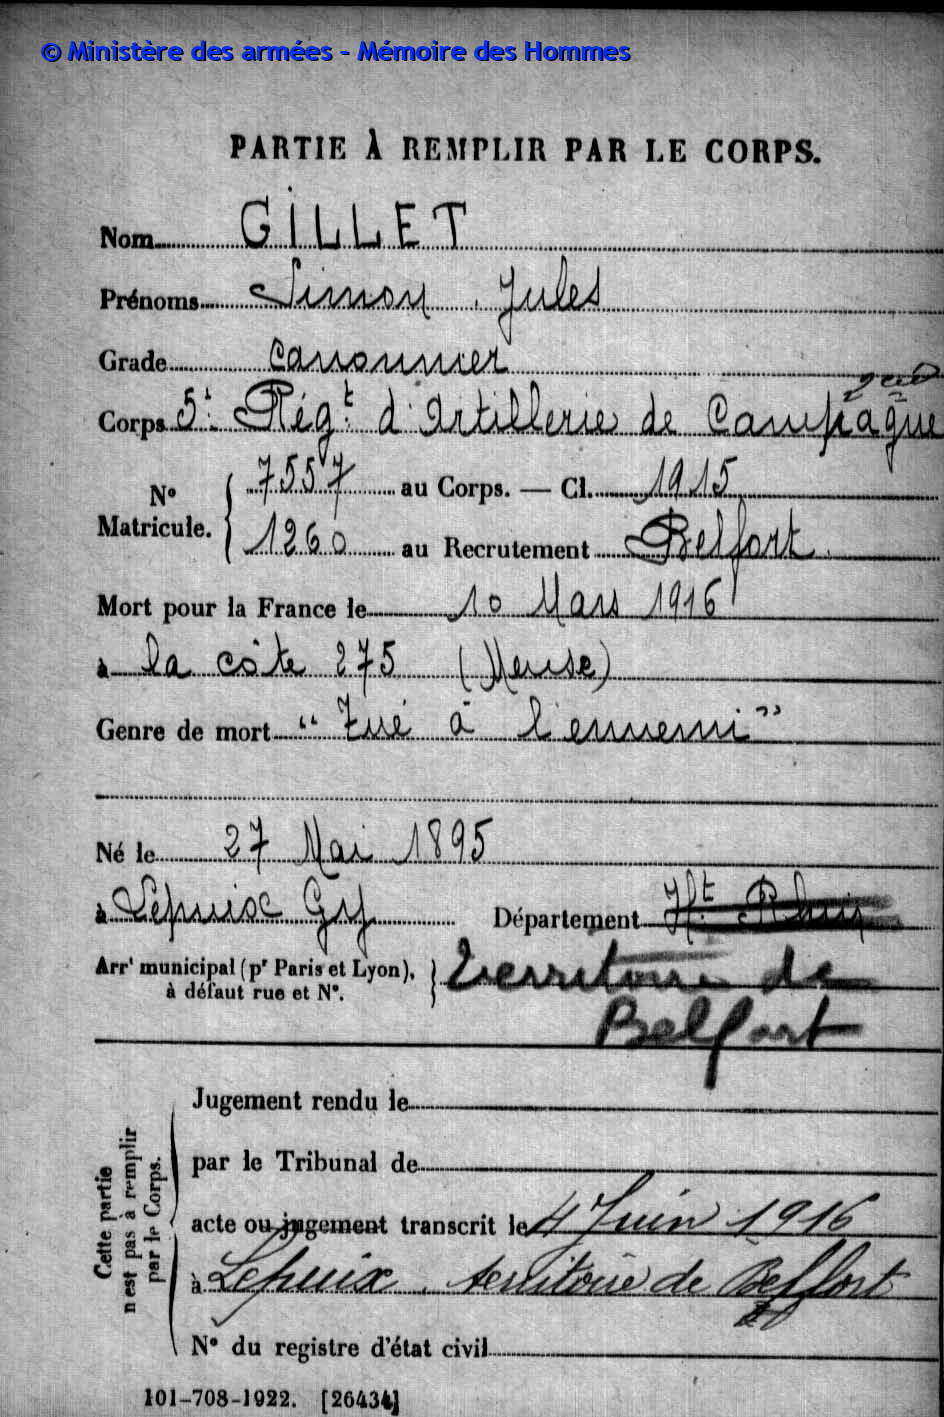 © Ministère des armées - Mémoire des Hommes
PARTIE À REMPLIR PAR LE CORPS.
Nom GILLET
Prénoms Simon Jules
Grade canonnier
Corps 5e Régt d'Artillerie de Campagne
N° Matricule. { 7557 au Corps. — Cl. 1915
1260 au Recrutement Belfort
Mort pour la France le 10 Mars 1916
à la côte 275 (Meuse)
Genre de mort "Tué à l'ennemi"
Né le 27 Mai 1895
à Lepuix Gy Département Ht Rhin
Arrt municipal (pr Paris et Lyon), à défaut rue et N°. } Territoire de
Belfort
Cette partie n'est pas à remplir par le Corps.
Jugement rendu le
par le Tribunal de
acte ou jugement transcrit le 4 Juin 1916
à Lepuix. territoire de Belfort
N° du registre d'état civil
101-708-1922. [26434]